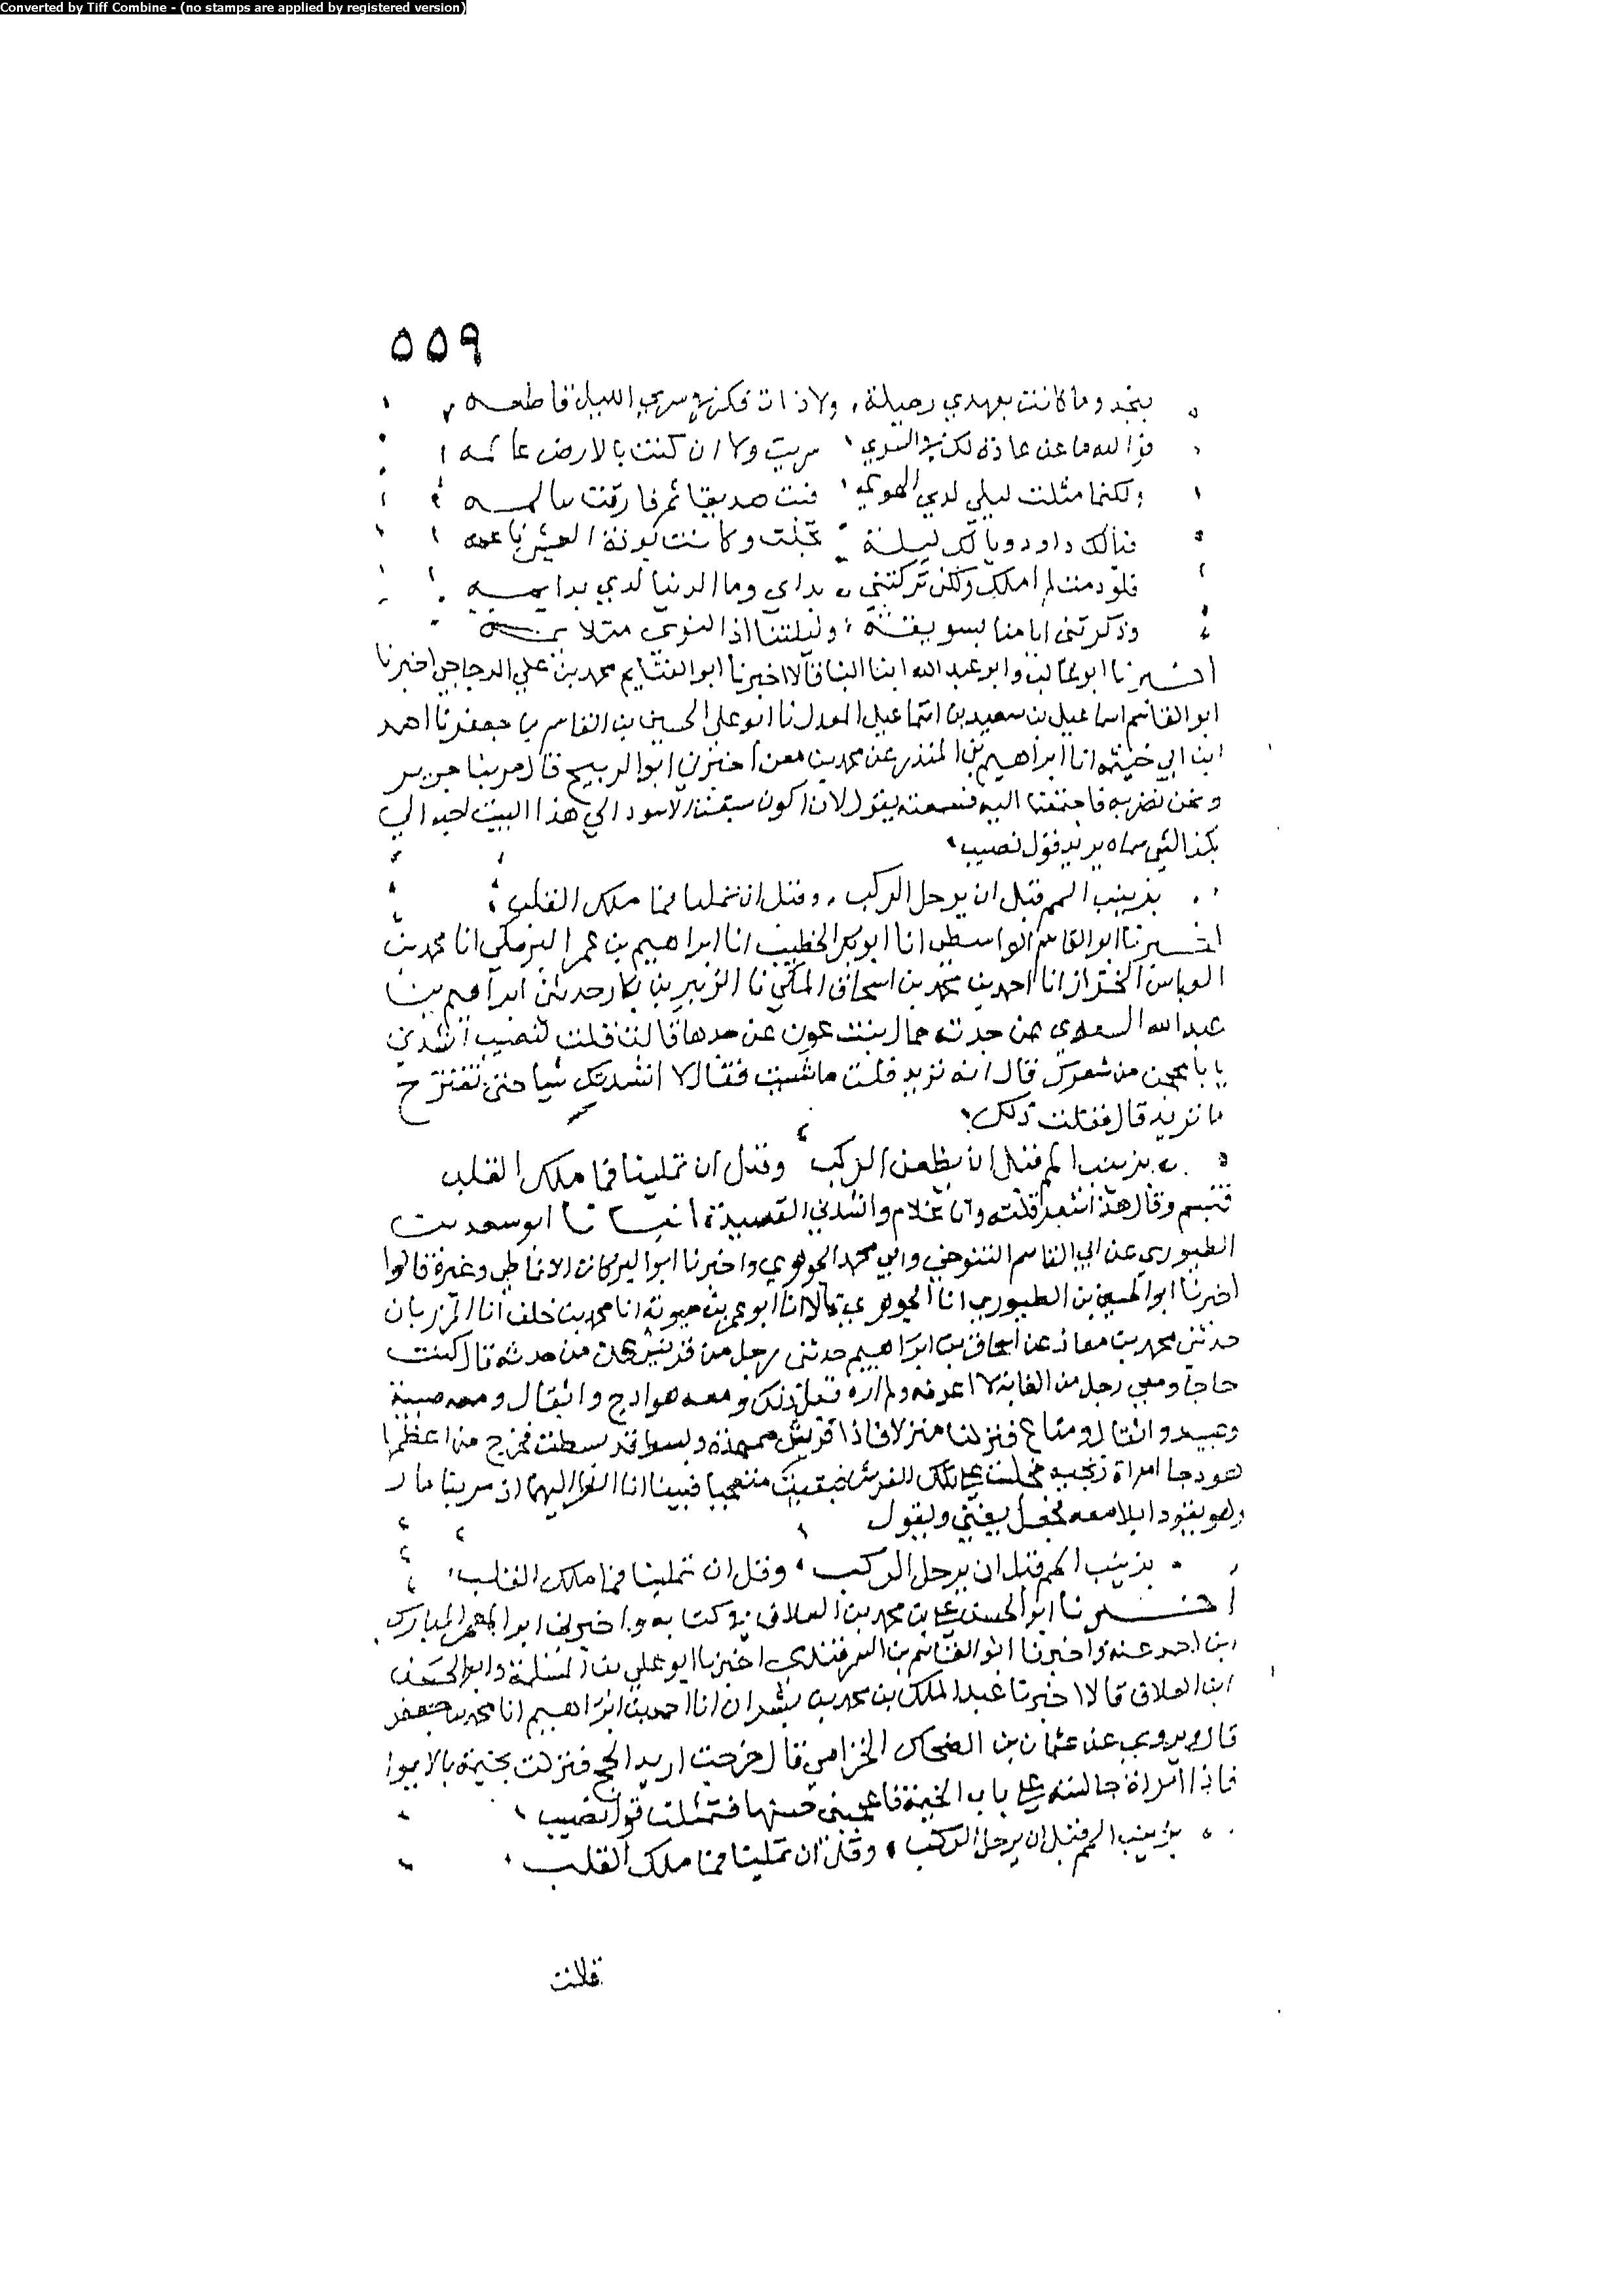 Converted by Tiff Combine - (no stamps are applied by registered version)
٥٥٩
بنجد وما كانت بعهدي رحيلة ولا ذات فكر في سري الليل قاطمه
فوالله ما عن عادة لك في السري سريت ولا ان كنت بالارض عالمه
ولكنما مثلت ليلي لدي الهوي فبت صديقا ثم فارقت سالمه
فنالك داود ويالك ليلة تجلت وكانت العيش ناعمه
فلو دمت لم املك ولكن تركتني بداي وما الدنيا لدي بدايمه
وذكرتني ايامنا بسويقة وليلتنا اذ النوي متلايمة
اخبرنا ابو غالب وابو عبد الله ابنا البنا قالا اخبرنا ابو الغنايم محمد بن علي الدجاجي اخبرنا
ابو القاسم اسماعيل بن سعيد بن اسماعيل المعدل نا ابو علي الحسين بن القاسم بن جعفر نا احمد
ابن ابي خيثمه انا ابراهيم بن المنذر عن محمد بن معن اخبرني ابو الربيع قال مر بنا جرير
ونحن بضريه فاجتمعنا اليه فسمعته يقول لان اكون سبقت الاسود الي هذا البيت احب الي
بكذا لشي سماه يريد قول نصيب
بزينب المم قبل ان يرحل الركب وقبل ان تملينا فما ملك القلب
اخبرنا ابو القاسم الواسطي انا ابو بكر الخطيب انا ابراهيم بن عمر البرمكي انا محمد بن
العباس الخزاز انا احمد بن محمد بن اسحاق المكي نا الزبير بن بكار حدثني ابراهيم بن
عبد الله السعدي عن جدته جمال بنت عون عن جدها قالت قلت لنصيب انشدني
يا با محجن من شعرك قال انه تريد قلت ما شيت فقال لا انشدتك شيا حتي تقترح
ما تريد قال فقلت ذلك
بزينب المم قبل ان يظعن الركب وقبل ان تملينا فما ملك القلب
فتبسم وقال هذا شعر قلته وانا غلام وانشدني القصيدة انبانا ابو سعد بن
الطيوري عن ابي القاسم التنوخي وابي محمد الجوهري واخبرنا ابو البركات الانماطي وغيره قالوا
اخبرنا ابو الحسين بن الطيوري انا الجوهري قالا انا ابو عمر بن حيويه انا محمد بن خلف انا المرزبان
حدثني محمد بن معاذ عن اسحاق بن ابراهيم حدثني رجل من قريش عن من حدثه قال كنت
حاجا ومعي رجل من القافلة لا اعرفه ولم اره قبل ذلك ومعه هوادج واثقال ومعه صبية
وعبيد واثقال ومتاع فنزلنا منزلا فاذا فرش ممهدة وبسط قد بسطت فخرج من اعظمها
هودجا امراة زنجيه فجلست علي تلك الفرش فبقيت متعجبا فبينا انا انظر اليهما اذ مر بنا مار
وهو يقود ابلا معه فجعل يغني ويقول
بزينب المم قبل ان يرحل الركب وقبل ان تملينا فما ملك القلب
اخبرنا ابو الحسن علي بن محمد بن العلاف في كتابه واخبرني ابو المعمر المبارك
ابن احمد عنه واخبرنا ابو القاسم بن السمرقندي اخبرنا ابو علي بن المسلمة وابو الحسن
ابن العلاف قالا اخبرنا عبد الملك بن محمد بن بشران انا احمد بن ابراهيم انا محمد بن جعفر
قال ويروي عن عثمان بن الضحاك الخزامي قال خرجت اريد الحج فنزلت بخيمة بالابوا
فاذا امراة جالسه علي باب الخيمة فاعجبني حسنها فتمثلت قول نصيب
بزينب المم قبل ان يرحل الركب وقبل ان تملينا فما ملك القلب
فقالت